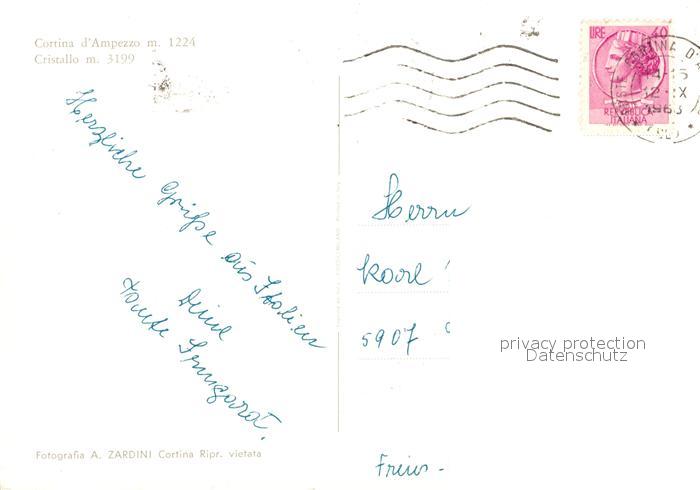 Cortina d'Ampezzo m. 1224
Cristallo m. 3199
Herzliche Grüße aus Italien
Deine
Tante Irmgard.
LIRE 40
REPUBBLICA
ITALIANA
CORTINA D'A
12 - IX
1963
Herrn
Karl
5907
privacy protection
Datenschutz
Fotografia A. ZARDINI Cortina Ripr. vietata